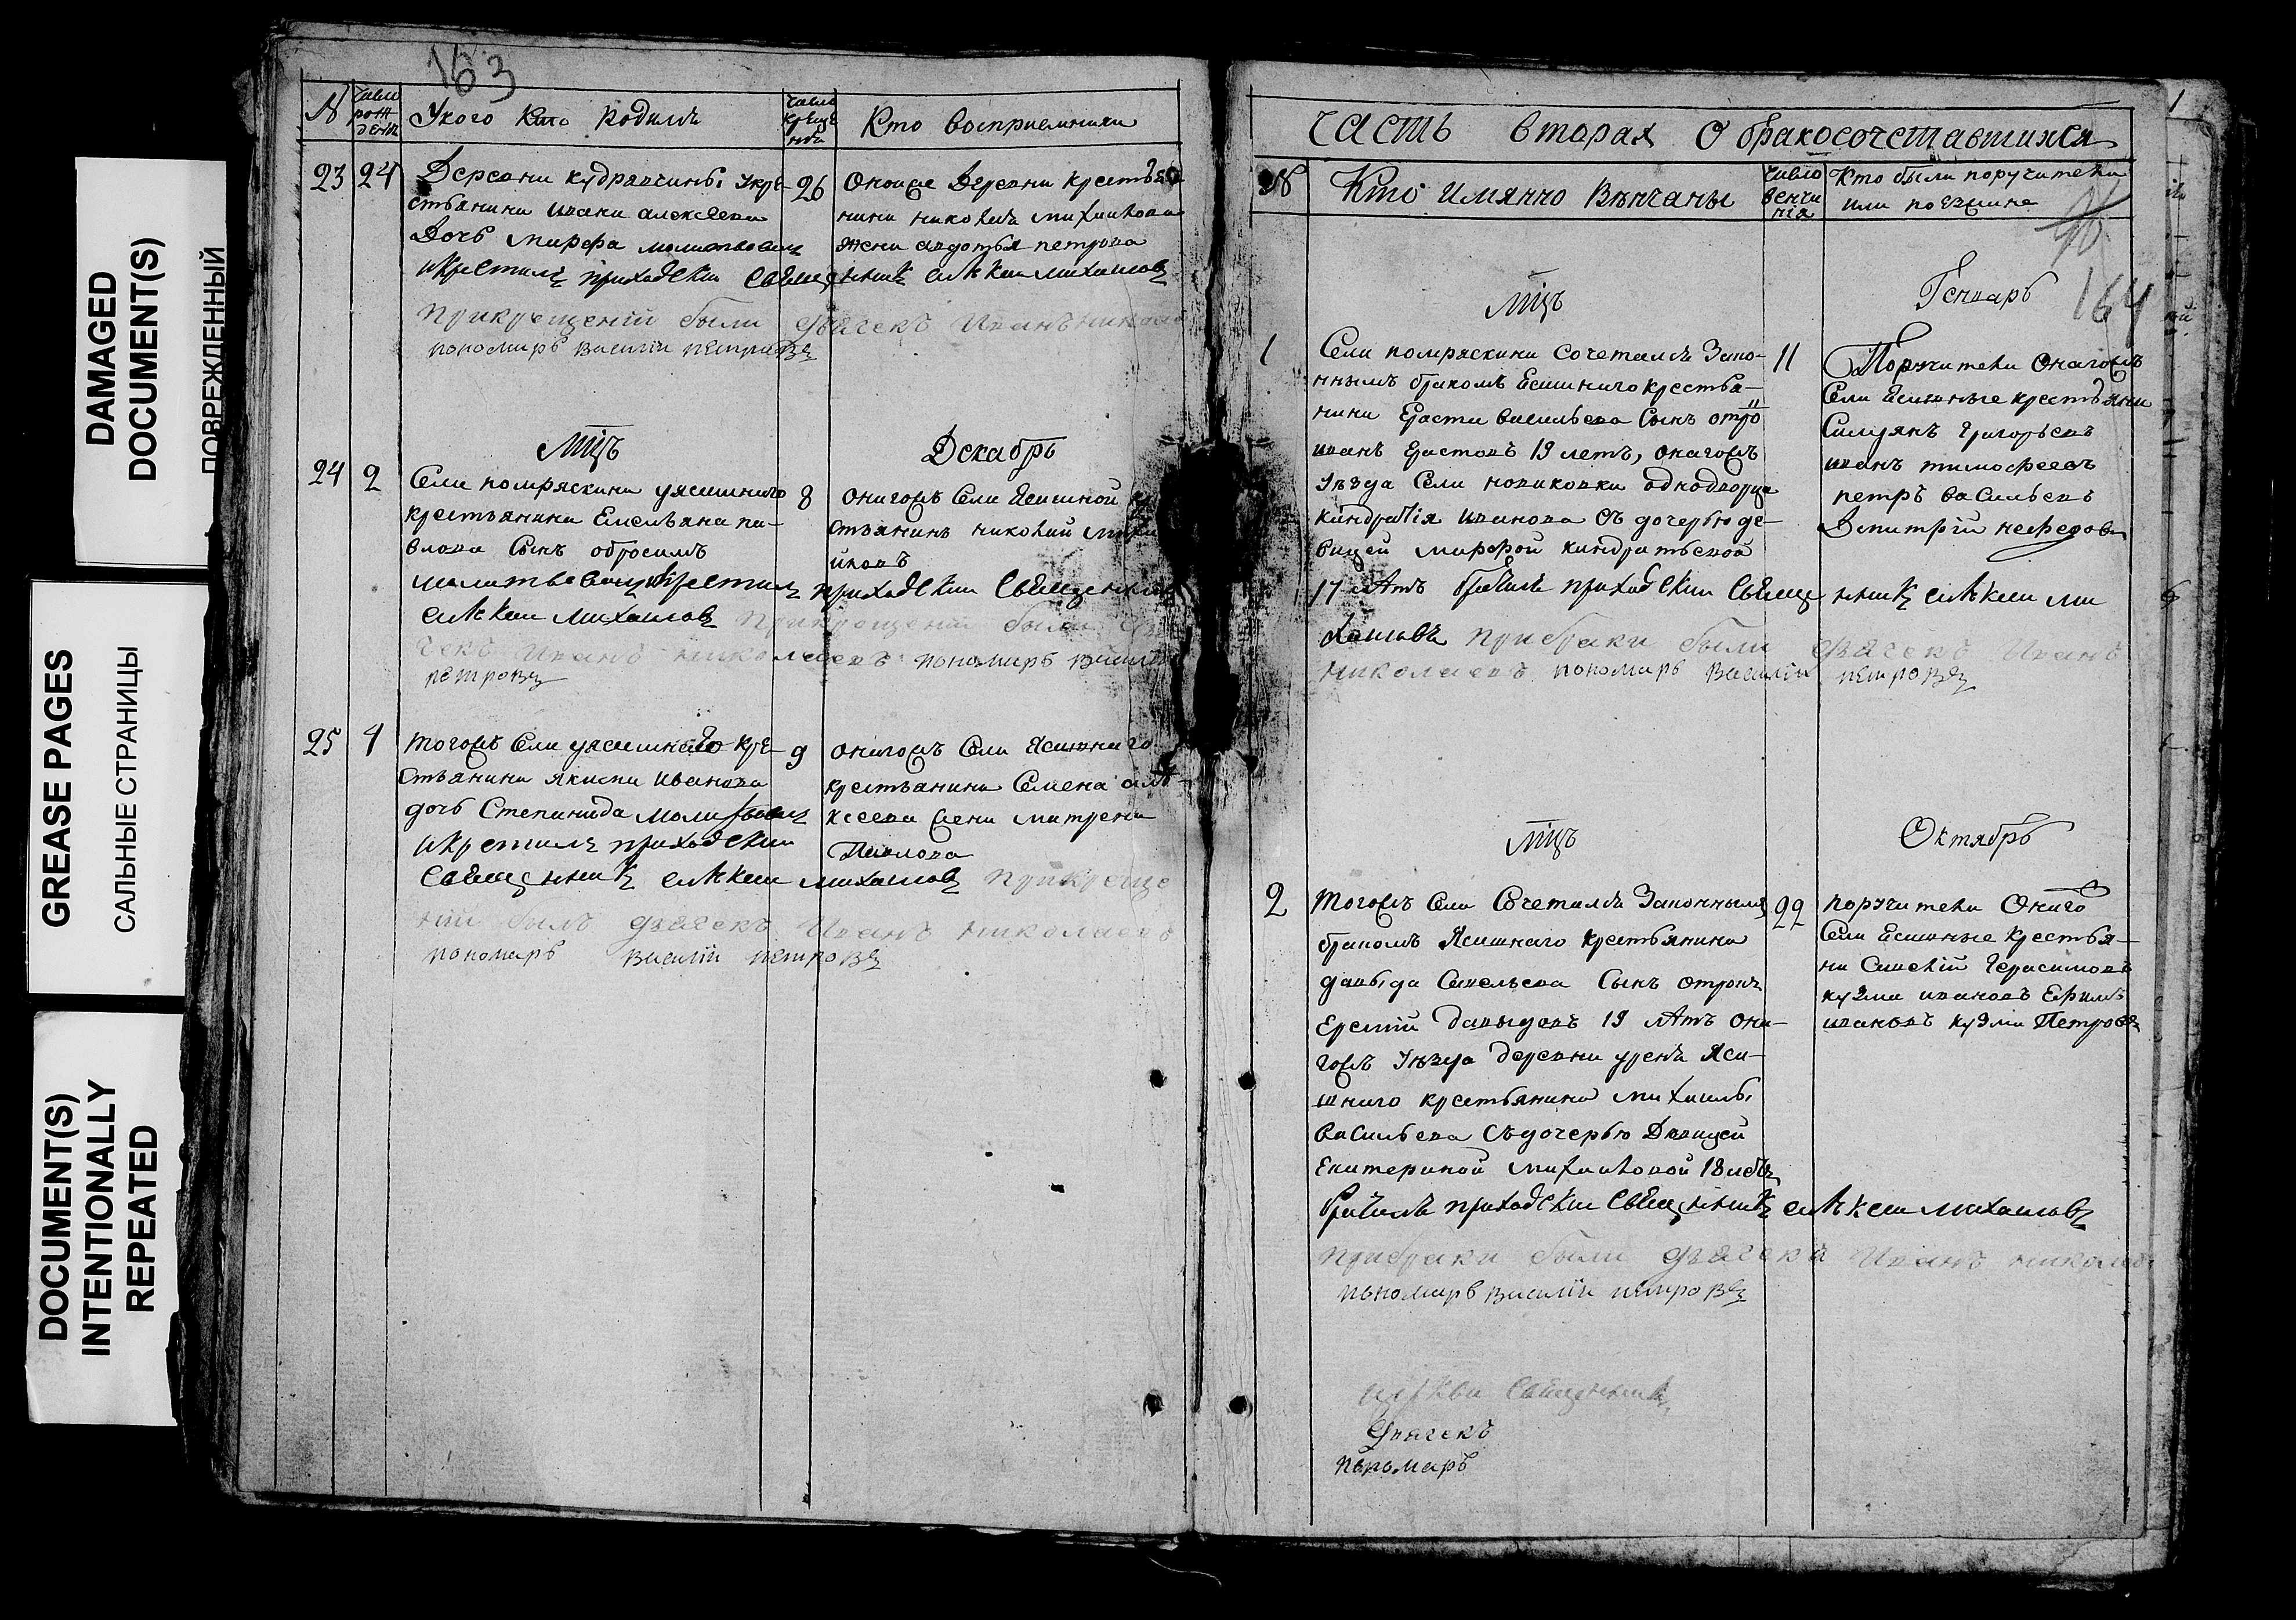 DAMAGED
DOCUMENT(S)
ПОВРЕЖДЕННЫЙ
GREASE PAGES
САЛЬНЫЕ СТРАНИЦЫ
DOCUMENT(S)
INTENTIONALLY
REPEATED
163
№
число рождения
У кого кто родилъ
число крещения
Кто восприемники
23 24
Деревни кудравчины у кре-
стьянина ивана алексеева
Дочь марфа молитвовалъ
икрестилъ приходскии Священникъ алѣксеи михаиловъ
26
Оношѣ деревни крестья
нина николая михайлова
жена авдотья петрова
Прикрещеніи были дьячекъ Иванъ николае
пономарь василіи петровъ
мцъ Декабрь
24 2
Села помряскина уясашнаго
крестьянина Емельяна па-
влова Сынъ обросимъ
молитвовалъ икрестилъ приходскии Священникъ
алѣксеи михаиловъ Прикрещеніи были дья
чекъ Иванъ николаевъ пономарь василіи
петровъ
8
онагожъ Села Ясашной кре
стьянинъ николай миха
йловъ
25 4
тогожъ Села уясашнаго кре-
стьянина якима иванова
дочь Степанида молитвовалъ
икрестилъ приходскии
Священникъ алѣксеи михаиловъ Прикреще
ніи былъ дьячекъ Иванъ николаевъ
пономарь василіи петровъ
9
онагожъ Села Ясашнаго
крестьянина Семена алѣ-
ксеева жена матрена
Павлова
ЧАСТЬ вторая О бракосочетавшихся
№
Кто имянно Вѣнчаны
число венчания
Кто были поручители
или поезжане
164
мцъ Генварь
1
Села помряскина Сочетался Зако-
ннымъ бракомъ Есашнаго крестья-
нина Ераста васильева Сынъ отро
иванъ Ерастовъ 19 летъ, онагожъ
Уѣзда Села новиковки однодворца
кандратія иванова съ дочерью де-
вицей марфой кандратьевой
17 лѣтъ бračилъ приходскии Священникъ алѣксеи ми
хаиловъ Прибраки были дьячекъ Иванъ
николаевъ пономарь василіи петровъ
11
Поручители Онагожъ
Села Ясашные крестьяни
григорьевъ
иванъ тимофеевъ
петръ васильевъ
Дмитрій нефедовъ
мцъ Октябрь
2
Тогожъ Села Сочетался Законнымъ
бракомъ Ясашнаго крестьянина
давыда Савельева Сынъ отрокъ
Еремѣй давыдовъ 19 лѣтъ она-
гожъ Уѣзда деревни урень Яса-
шнаго крестьянина михаилы
васильева Съдочерью Девицей
Екатериной михайловой 18 летъ
приходскии Священникъ алѣксеи михаиловъ
Прибраки были дьячекъ Иванъ николае
пономарь василіи петровъ
22
поручители Онаго
Села Есашные крестья-
ни герасимовъ
кузма ивановъ Ефимъ
ивановъ кузма Петровъ
церкви Священникъ
Дьячекъ
пономарь